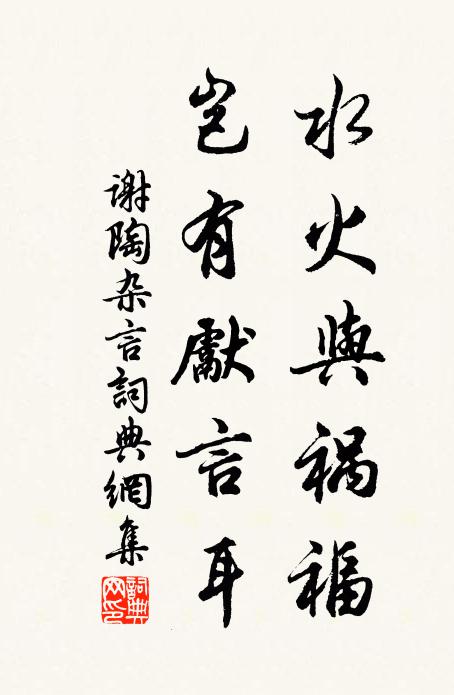 水火與禍福
豈有獻言耳
谢陶杂言詞典網集
詞典网印